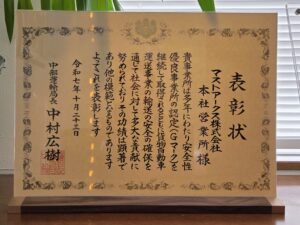 表彰状
マストワークス株式会社
本社営業所様
貴事業所は多年にわたり安全性
優良事業所の認定(Gマーク)を
継続して取得されるとともに貨物自動車
運送事業の輸送の安全の確保を
通じて社会に対して多大な貢献に
努められておりその功績は顕著で
あり他の模範となるものであります
よってこれを表彰します
令和七年十月二十三日
中部運輸局長 中村広樹